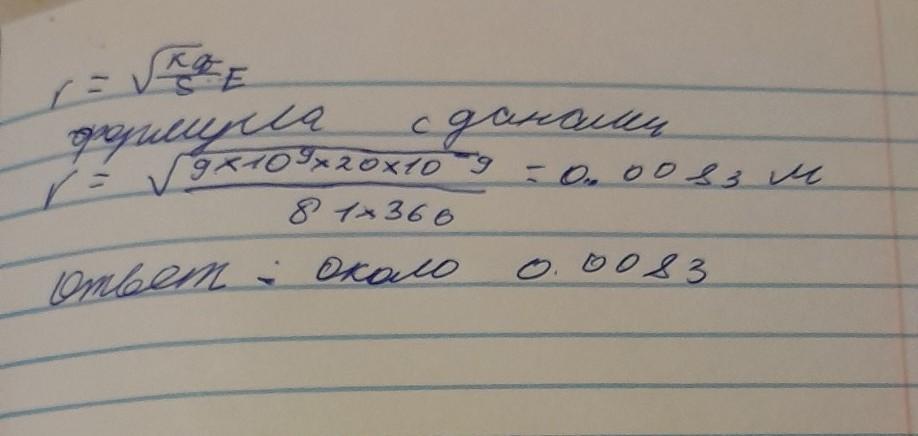 r = √kq/s E
формула с данами
r = √9×10⁹×20×10⁻⁹ = 0.0083 м
81×360
Ответ: около 0.0083